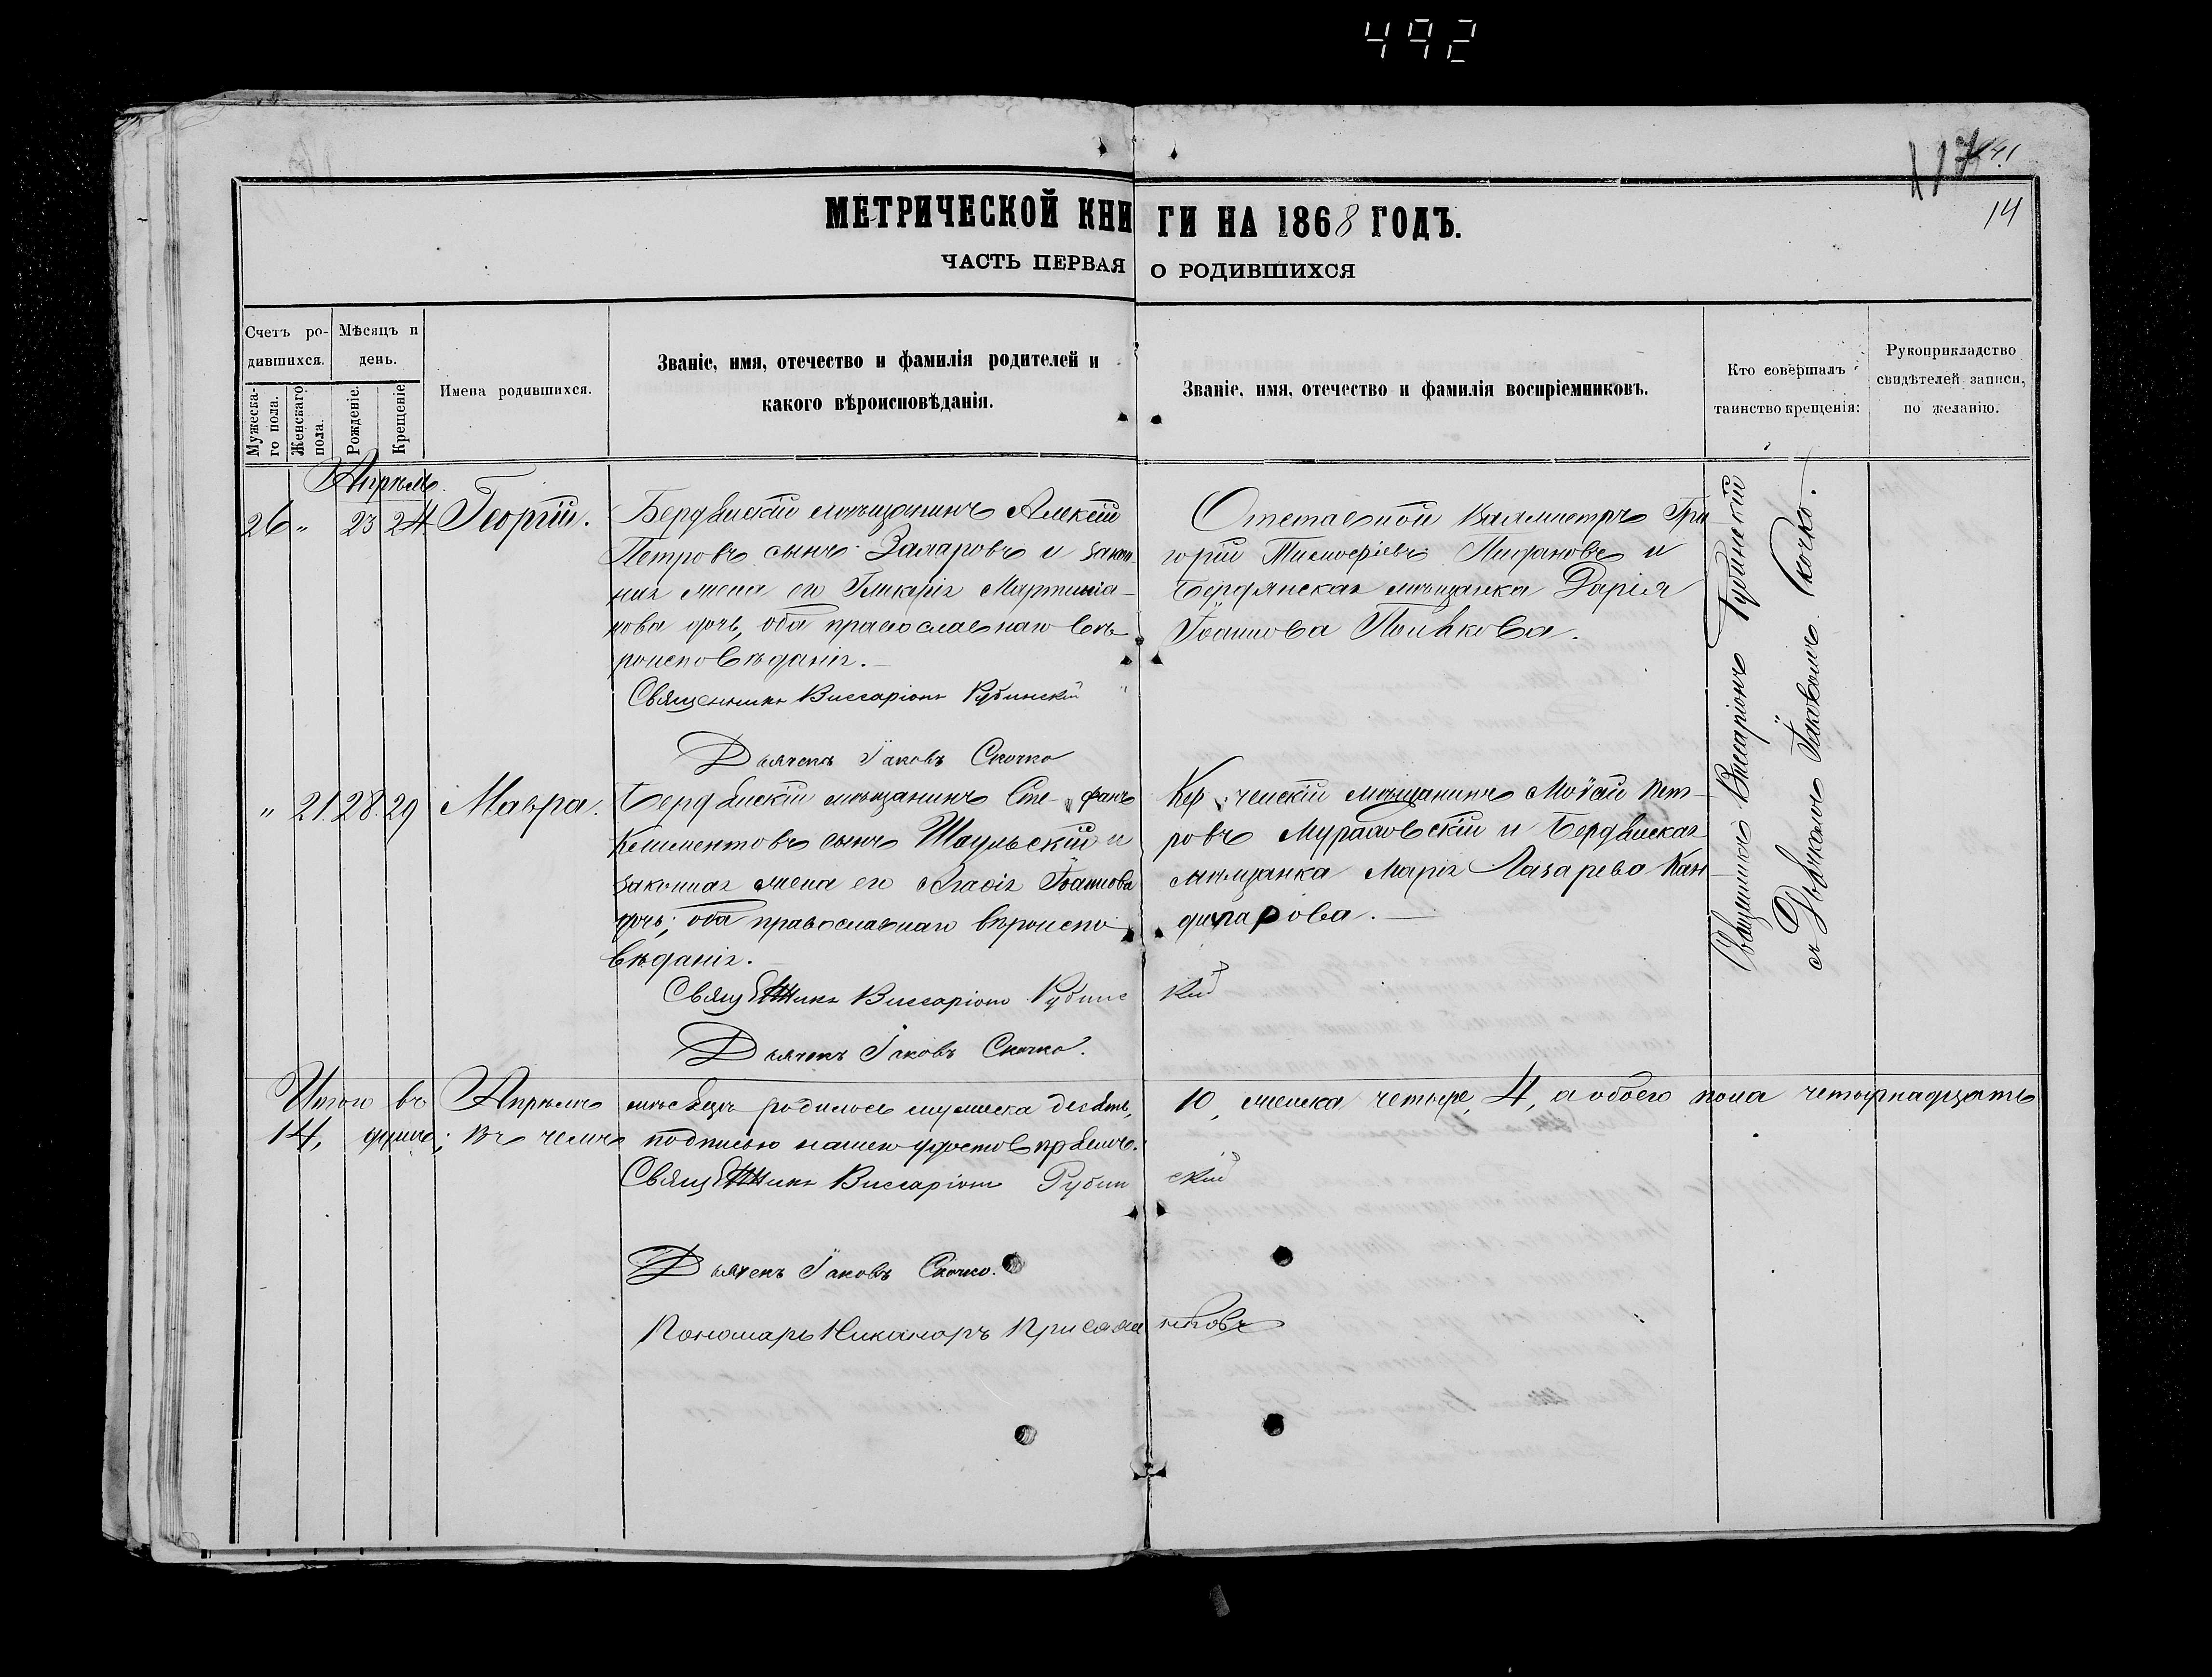 492
117 141
14
МЕТРИЧЕСКОЙ КНИГИ НА 1868 ГОДЪ.
ЧАСТЬ ПЕРВАЯ О РОДИВШИХСЯ
Счетъ родившихся.
Мужескаго пола.
Женскаго пола.
Мѣсяцъ и день.
Рожденіе.
Крещеніе.
Имена родившихся.
Званіе, имя, отечество и фамилія родителей и
какого вѣроисповѣданія.
Званіе, имя, отечество и фамилія воспріемниковъ.
Кто совершалъ
таинство крещенія:
Рукоприкладство
свидѣтелей записи,
по желанію.
Апрѣль
26 " 23 24 Георгій.
Бердянскій мѣщанинъ Алексій
Петровъ сынъ Захаровъ и закон-
ная жена его Гликерія Мартинiа-
нова дочь, оба православнаго вѣ-
роисповѣданія.
Священникъ Виссаріонъ Рубинскій
Дьячекъ Іаковъ Скочко
Отставной Вахмистръ Гри-
горій Тимофіевъ Лифановъ и
Бердянская мѣщанка Дарія
Іоаннова Полякова.
Священникъ Виссаріонъ Рубинскій
съ Дьячкомъ Іаковомъ Скочко.
" 21. 28. 29 Мавра.
Бердянскій мѣщанинъ Сте-фанъ
Климентовъ сынъ Шаульскій и
законная жена его Агафія Іоаннова
дочь; оба православнаго вѣроиспо-
вѣданія.
Священникъ Виссаріонъ Рубинскій
Дьячекъ Іаковъ Скочко.
Кер-ченскій мѣщанинъ Моѵсей Пет-
ровъ Мураховскій и Бердянская
мѣщанка Марія Лазарева Кан-
дипарова.
Итого въ Апрѣлѣ мѣсяцѣ родилось мужеска десять, 10, женска четыре, 4, а обоего пола четырнадцать
14, душъ; въ чемъ подписью нашею удостовѣряемъ.
Священникъ Виссаріонъ Рубинскій
Дьячекъ Іаковъ Скочко.
Пономарь Никаноръ Присажнековъ